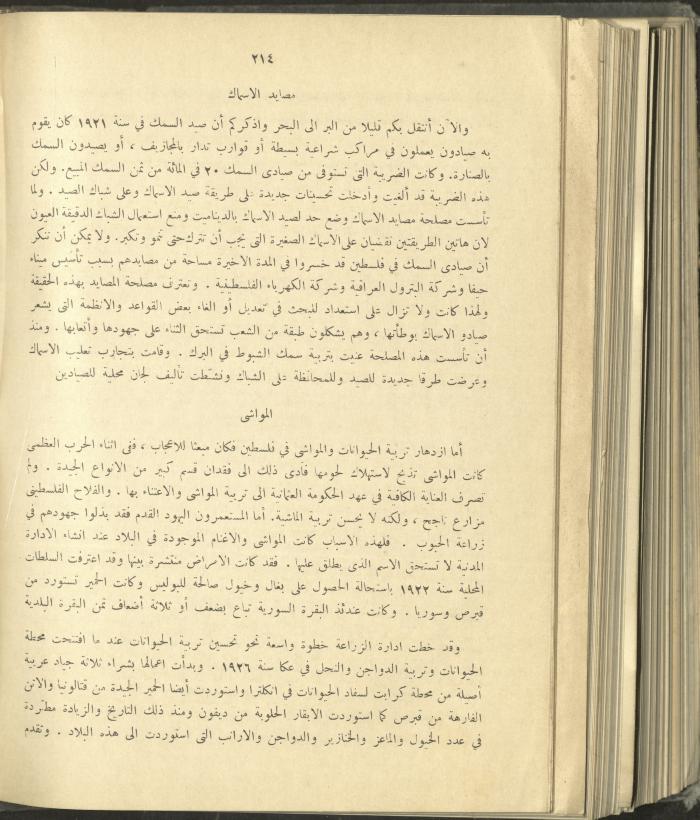 ٢١٤
مصايد الاسماك
والآن أنتقل بكم قليلا من البر الى البحر واذكركم أن صيد السمك في سنة ١٩٢١ كان يقوم
به صيادون يعملون في مراكب شراعية بسيطة أو قوارب تدار بالمجازيف ، أو يصيدون السمك
بالصنارة. وكانت الضريبة التي تستوفى من صيادى السمك ٢٠ في المائة من ثمن السمك المبيع. ولكن
هذه الضريبة قد ألغيت وأدخلت تحسينات جديدة على طريقة صيد الاسماك وعلى شباك الصيد . ولما
تأسست مصلحة مصايد الاسماك وضع حد لصيد الاسماك بالديناميت ومنع استعمال الشباك الدقيقة العيون
لان هاتين الطريقتين تقضيان على الاسماك الصغيرة التى يجب أن تترك حتى تنمو وتكبر. ولا يمكن أن ننكر
أن صيادى السمك في فلسطين قد خسروا في المدة الاخيرة مساحة من مصايدهم بسبب تأسيس ميناء
حيفا وشركة البترول العراقية وشركة الكهرباء الفلسطينية . وتعترف مصلحة المصايد بهذه الحقيقة
ولهذا كانت ولا تزال على استعداد للبحث في تعديل أو الغاء بعض القواعد والانظمة التى يشعر
صيادو الاسماك بوطأتها ، وهم يشكلون طبقة من الشعب تستحق الثناء على جهودها وأتعابها . ومنذ
أن تأسست هذه المصلحة عنيت بتربية سمك الشبوط في البرك . وقامت بتجارب تعليب الاسماك
وعرضت طرقا جديدة للصيد وللمحافظة على الشباك ونشطت تأليف لجان محلية للصيادين
المواشى
أما ازدهار تربية الحيوانات والمواشى في فلسطين فكان مبعثا للاعجاب ، ففى اثناء الحرب العظمى
كانت المواشى تذبح لاستهلاك لحومها فادى ذلك الى فقدان قسم كبير من الانواع الجيدة . ولم
تصرف العناية الكافية في عهد الحكومة العثمانية الى تربية المواشى والاعتناء بها . والفلاح الفلسطينى
مزارع ناجح ، ولكنه لا يحسن تربية الماشية. أما المستعمرون اليهود القدم فقد بذلوا جهودهم في
زراعة الحبوب . فلهذه الاسباب كانت المواشى والاغنام الموجودة في البلاد عند انشاء الادارة
المدنية لا تستحق الاسم الذى يطلق عليها . فقد كانت الامراض منتشرة بينها وقد اعترفت السلطات
المحلية سنة ١٩٢٢ باستحالة الحصول على بغال وخيول صالحة للبوليس وكانت الحمير تستورد من
قبرص وسوريا . وكانت عندئذ البقرة السورية تباع بضعف أو ثلاثة أضعاف ثمن البقرة البلدية
وقد خطت ادارة الزراعة خطوة واسعة نحو تحسين تربية الحيوانات عند ما افتتحت محطة
الحيوانات وتربية الدواجن والنحل في عكا سنة ١٩٢٦ . وبدأت اعمالها بشراء ثلاثة جياد عربية
أصيلة من محطة كرابت لسفاد الحيوانات في انكلترا واستوردت أيضا الحمير الجيدة من قتالونيا والاتن
الفارهة من قبرص كما استوردت الابقار الحلوبة من ديفون ومنذ ذلك التاريخ والزيادة مطردة
في عدد الخيول والماعز والخنازير والدواجن والارانب التى استوردت الى هذه البلاد . وتقدم